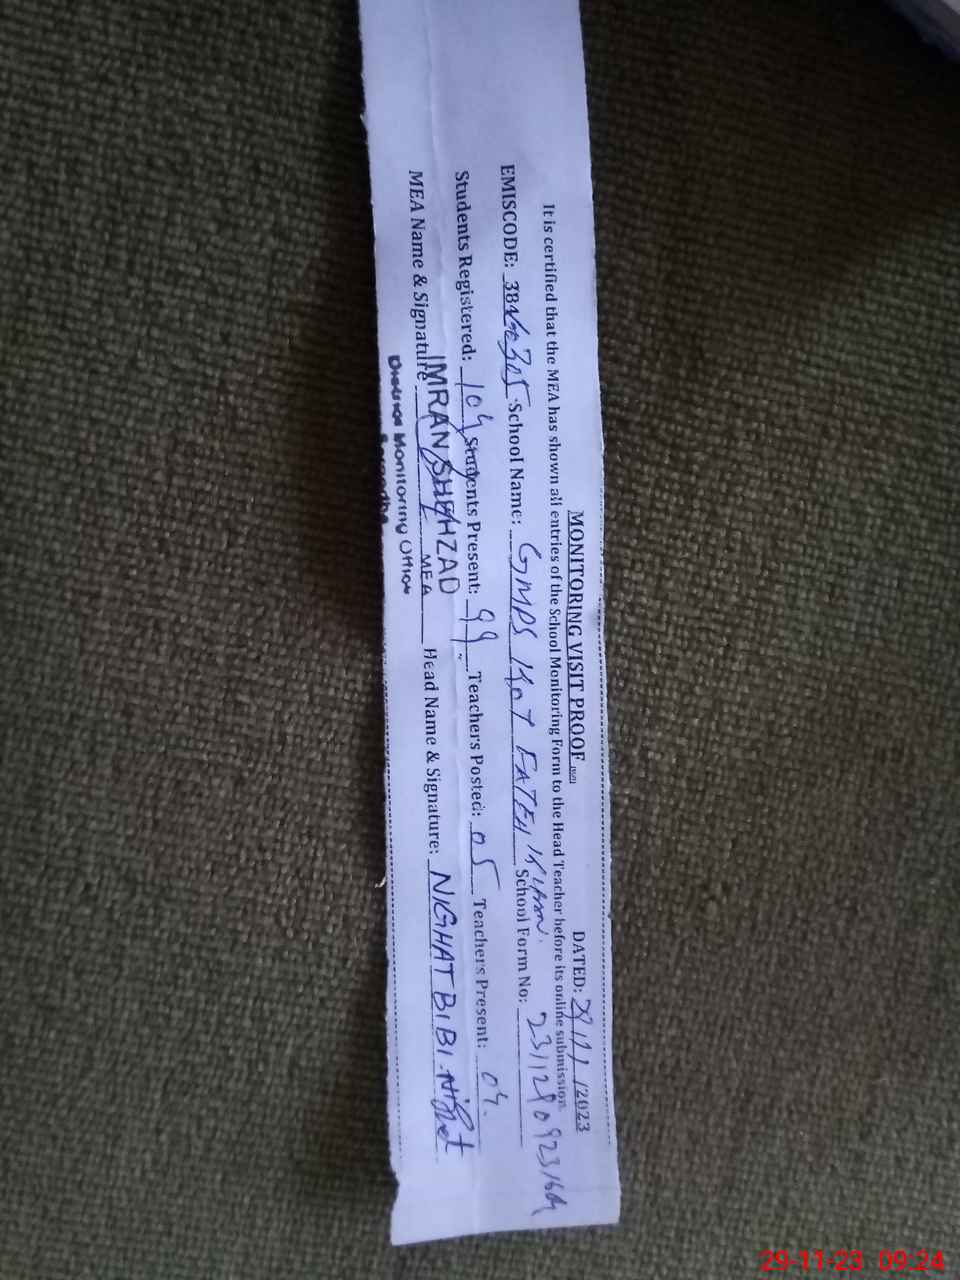 MONITORING VISIT PROOF DATED: 29/11/2023
It is certified that the MEA has shown all entries of the School Monitoring Form to the Head Teacher before its online submission.
EMISCODE: School Name: GMPS KOT FATEH KHAN. School Form No:
Students Registered: 104 Students Present: 99 Teachers Posted: 05 Teachers Present: 04.
MEA Name & Signature Head Name & Signature: NIGHAT BIBI Nighat
IMRAN SHEHZAD
MEA
District Monitoring Office
Sargodha
29-11-23 09:24